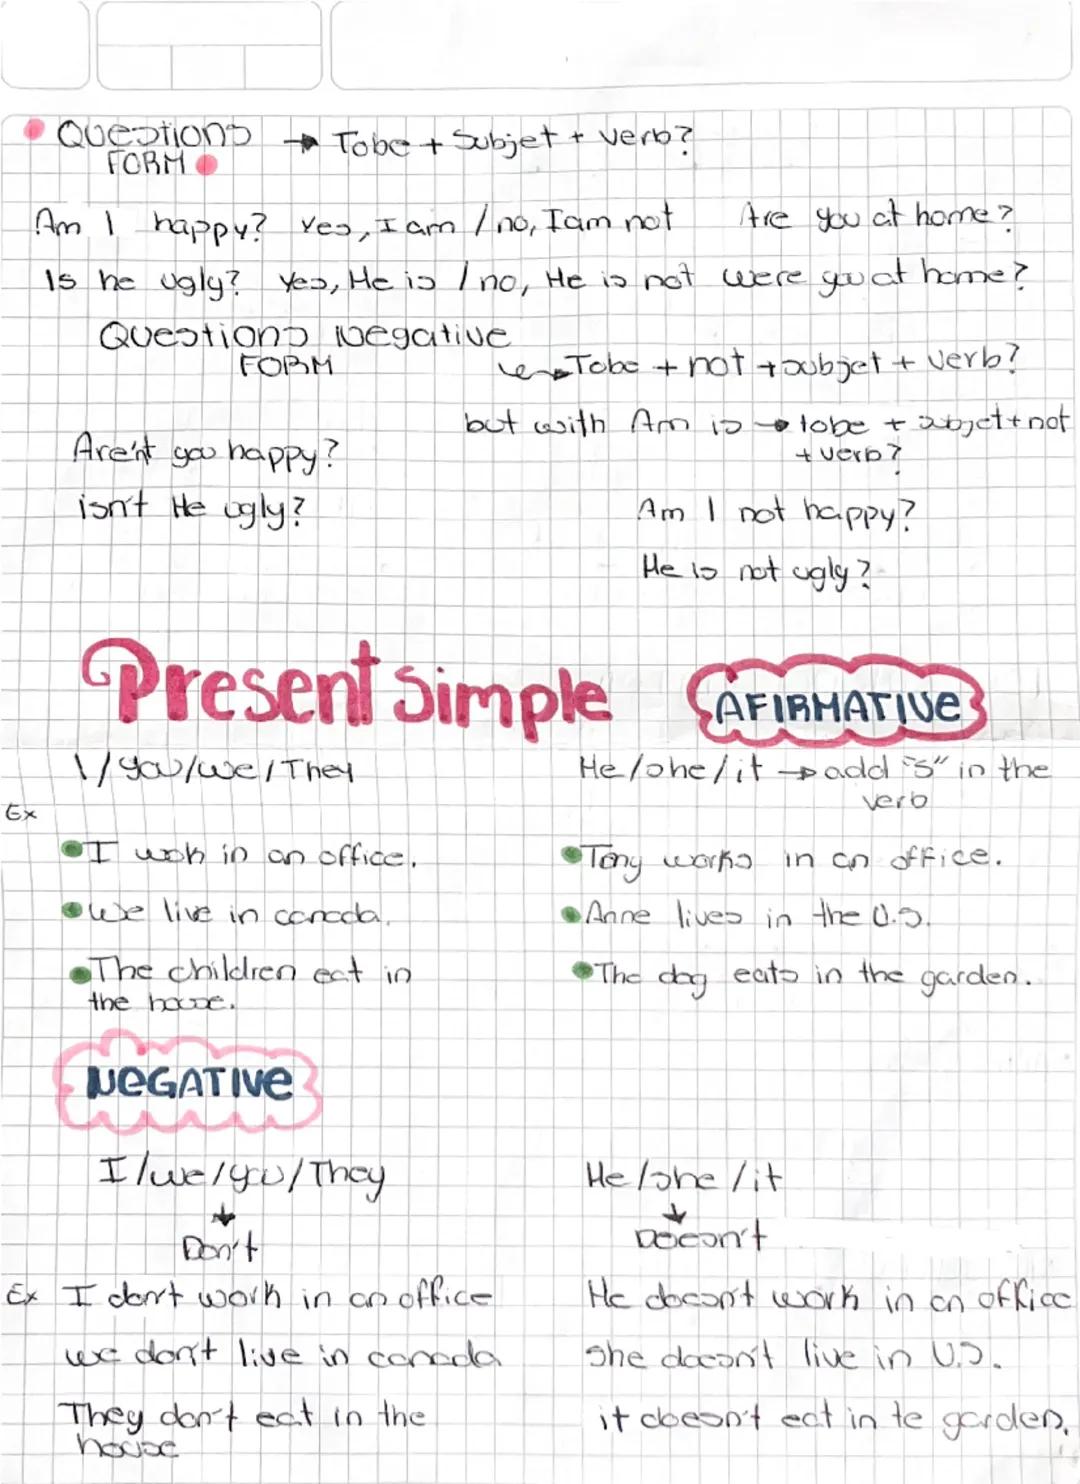 Questions → Tobe + Subjet + verb?
FORM
Am I happy? Yes, I am / no, I am not Are you at home?
Is he ugly? Yes, He is / no, He is not were you at home?
Questions Negative
FORM
→ Tobe + not + subjet + verb?
but with Am is → tobe + subjet + not
+ verb?
Aren't you happy?
isn't He ugly?
Am I not happy?
He is not ugly?
Present Simple AFIRMATIVE
I/you/we/They He/she/it → add "s" in the
verb
Ex
I wok in an office. Tony works in an office.
We live in canada. Anne lives in the U.S.
The children eat in The dog eats in the garden.
the house.
NEGATIVE
I/we/you/They He/she/it
Don't Doesn't
Ex I don't work in an office He doesn't work in an office
we don't live in canada She doesn't live in U.S.
They don't eat in the it doesn't eat in te garden.
house